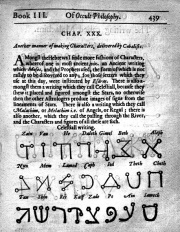 Book III. Of Occult Philosophy. 439
CHAP. XXX.
Another manner of making Characters, delivered by Cabalists.
Amongst the Hebrews I find more fashions of Characters,
whereof one is most ancient, viz. an Ancient writing
which Moses, and the Prophets used, the form of which is not rash-
ly to be discovered to any; for those letters which they
use at this day, were instituted by Esdras. There is also a-
mongst them a writing which they call Celestiall, because they
shew it placed and figured amongst the Stars, no otherwise
then the other Astrologers produce images of signs from the
lineaments of Stars. There is also a writing which they call
Malachim, or Melachim i.e. of Angels, or Regal; there is
also another, which they call the passing through the River,
and the Characters and figures of all these are such.
Celestiall writing.
Zain Vau He Daleth Gimel Beth Aleph
Nun Mem Lamed Caph Iod Theth Cheth